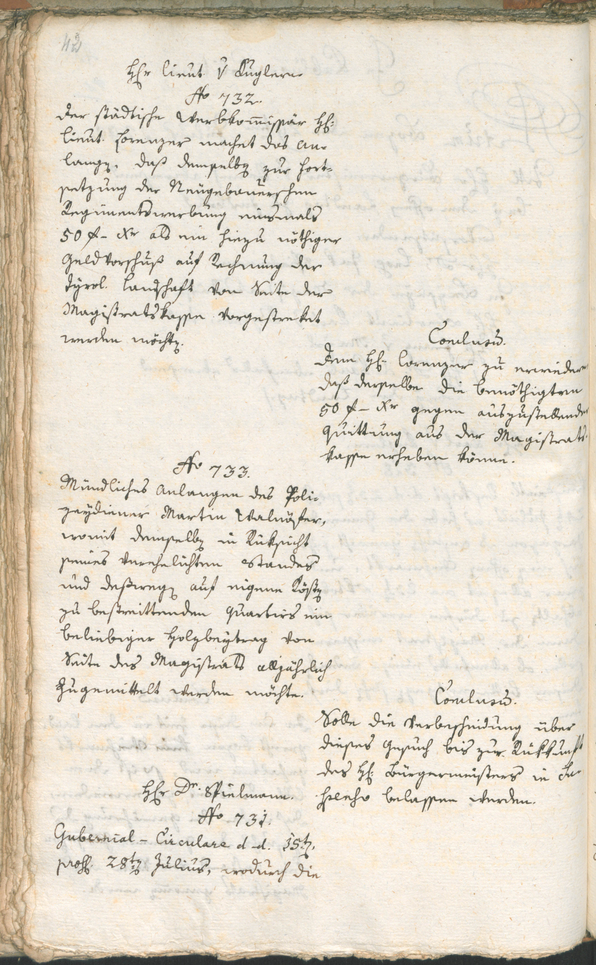 42
Hr Lieut v Kuglern
No 732.
Der städtische Werbkommissär H:
Lieut Lorenzer machet das An-
langen, daß demselben zur Fort-
setzung der Neugebauerschen
Regimentswerbung nunmals
50 f - Xr als ein hiezu nöthiger
Geldvorschuß auf Rechnung der
Tyrol. Landschaft von Seite der
Magistratskassen vorgestreket
werden möchte.
Conclusum.
Dem H: Lorenzer zu erwiedern
daß derselbe die benöthigten
50 f - Xr gegen auszustellende
Quittung aus der Magistrats-
kasse erheben könne.
No 733.
Mündliches Anlangen des Poli-
zeydiener Martin
womit demselben in Rüksicht
seines verehelichten Standes
und deßwegen auf eigene Kösten
zu bestreittenden Quartirs ein
beliebiger Holzbeytrag von
Seite des Magistrats alljährlich
zugemittelt werden möchte.
Conclusum.
Solle die Verbescheidung über
dieses Gesuch bis zur Rükkunft
des H: Bürgermeisters in
belassen werden.
Hr Dr. Spielmann.
No 731
Gubernial-Circulare d d. 15ten,
28ten Julius, wodurch die